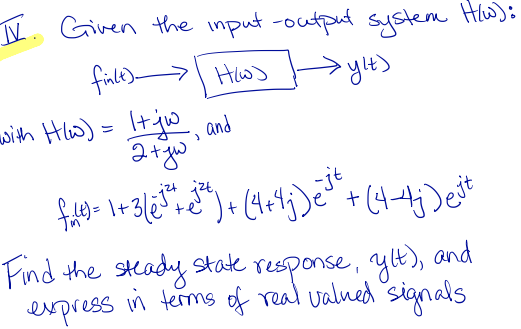 IV. Given the input-output system H(ω):
fin(t) → H(ω) → y(t)
with H(ω) = (1+jω)/(2+jω), and
fin(t) = 1+3(e^-j2t + e^j2t) + (4+4j)e^-jt + (4-4j)e^jt
Find the steady state response, y(t), and
express in terms of real valued signals